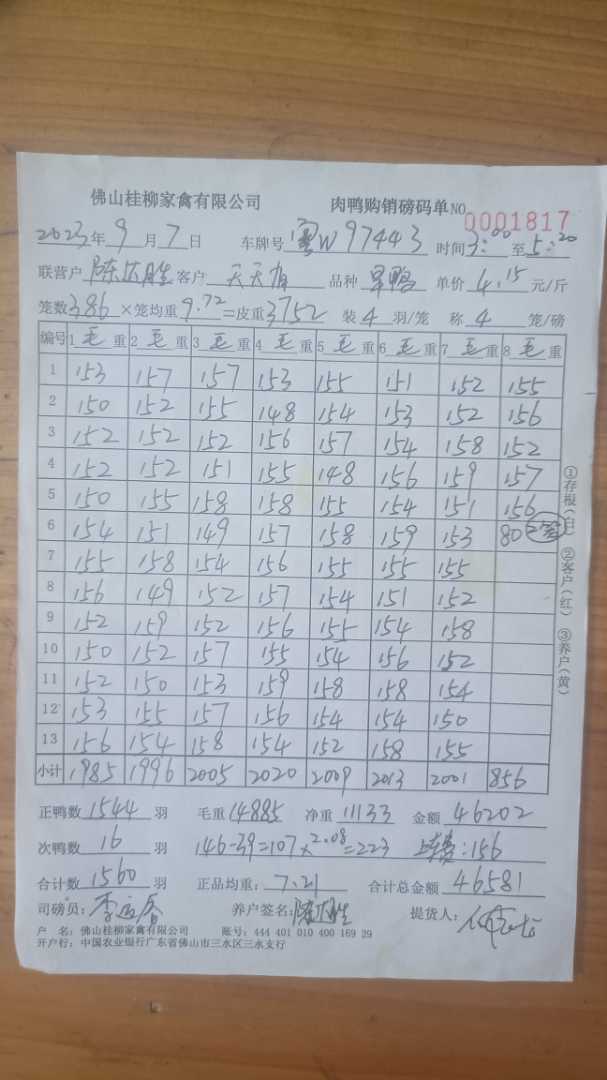 佛山桂柳家禽有限公司 肉鸭购销磅码单 NO 0001817
2023年 9 月 7 日 车牌号 粤W97443 时间 3:00 至 5:20
联营户 陈达胜 客户 天天旺 品种 旱鸭 单价 4.15 元/斤
笼数 386 ×笼均重 9.72 =皮重 3752 装 4 羽/笼 称 4 笼/磅
编号 1 毛 重 2 毛 重 3 毛 重 4 毛 重 5 毛 重 6 毛 重 7 毛 重 8 毛 重
1 153 157 157 153 155 151 152 155
2 150 152 155 148 154 153 152 156
3 152 152 152 156 157 154 158 152
4 152 152 151 155 148 156 159 157
5 150 155 158 158 155 154 151 156
6 154 151 149 157 158 159 153 80
7 155 158 154 156 155 155 155
8 156 149 152 157 154 151 152
9 152 159 152 156 155 154 158
10 150 152 157 155 154 156 152
11 152 150 153 159 158 158 154
12 153 155 157 156 154 154 150
13 156 154 158 154 152 158 155
小计 1985 1996 2005 2020 2009 2013 2001 856
正鸭数 1544 羽 毛重 14885 净重 11133 金额 46202
次鸭数 16 羽 146-39=107×2.08=223 :156
合计数 1560 羽 正品均重: 7.21 合计总金额 46581
司磅员: 养户签名: 陈达胜 提货人:
户 名: 佛山桂柳家禽有限公司 账号: 444 401 010 400 169 29
开户行: 中国农业银行广东省佛山市三水区三水支行
①存根(白) ②客户(红) ③养户(黄)